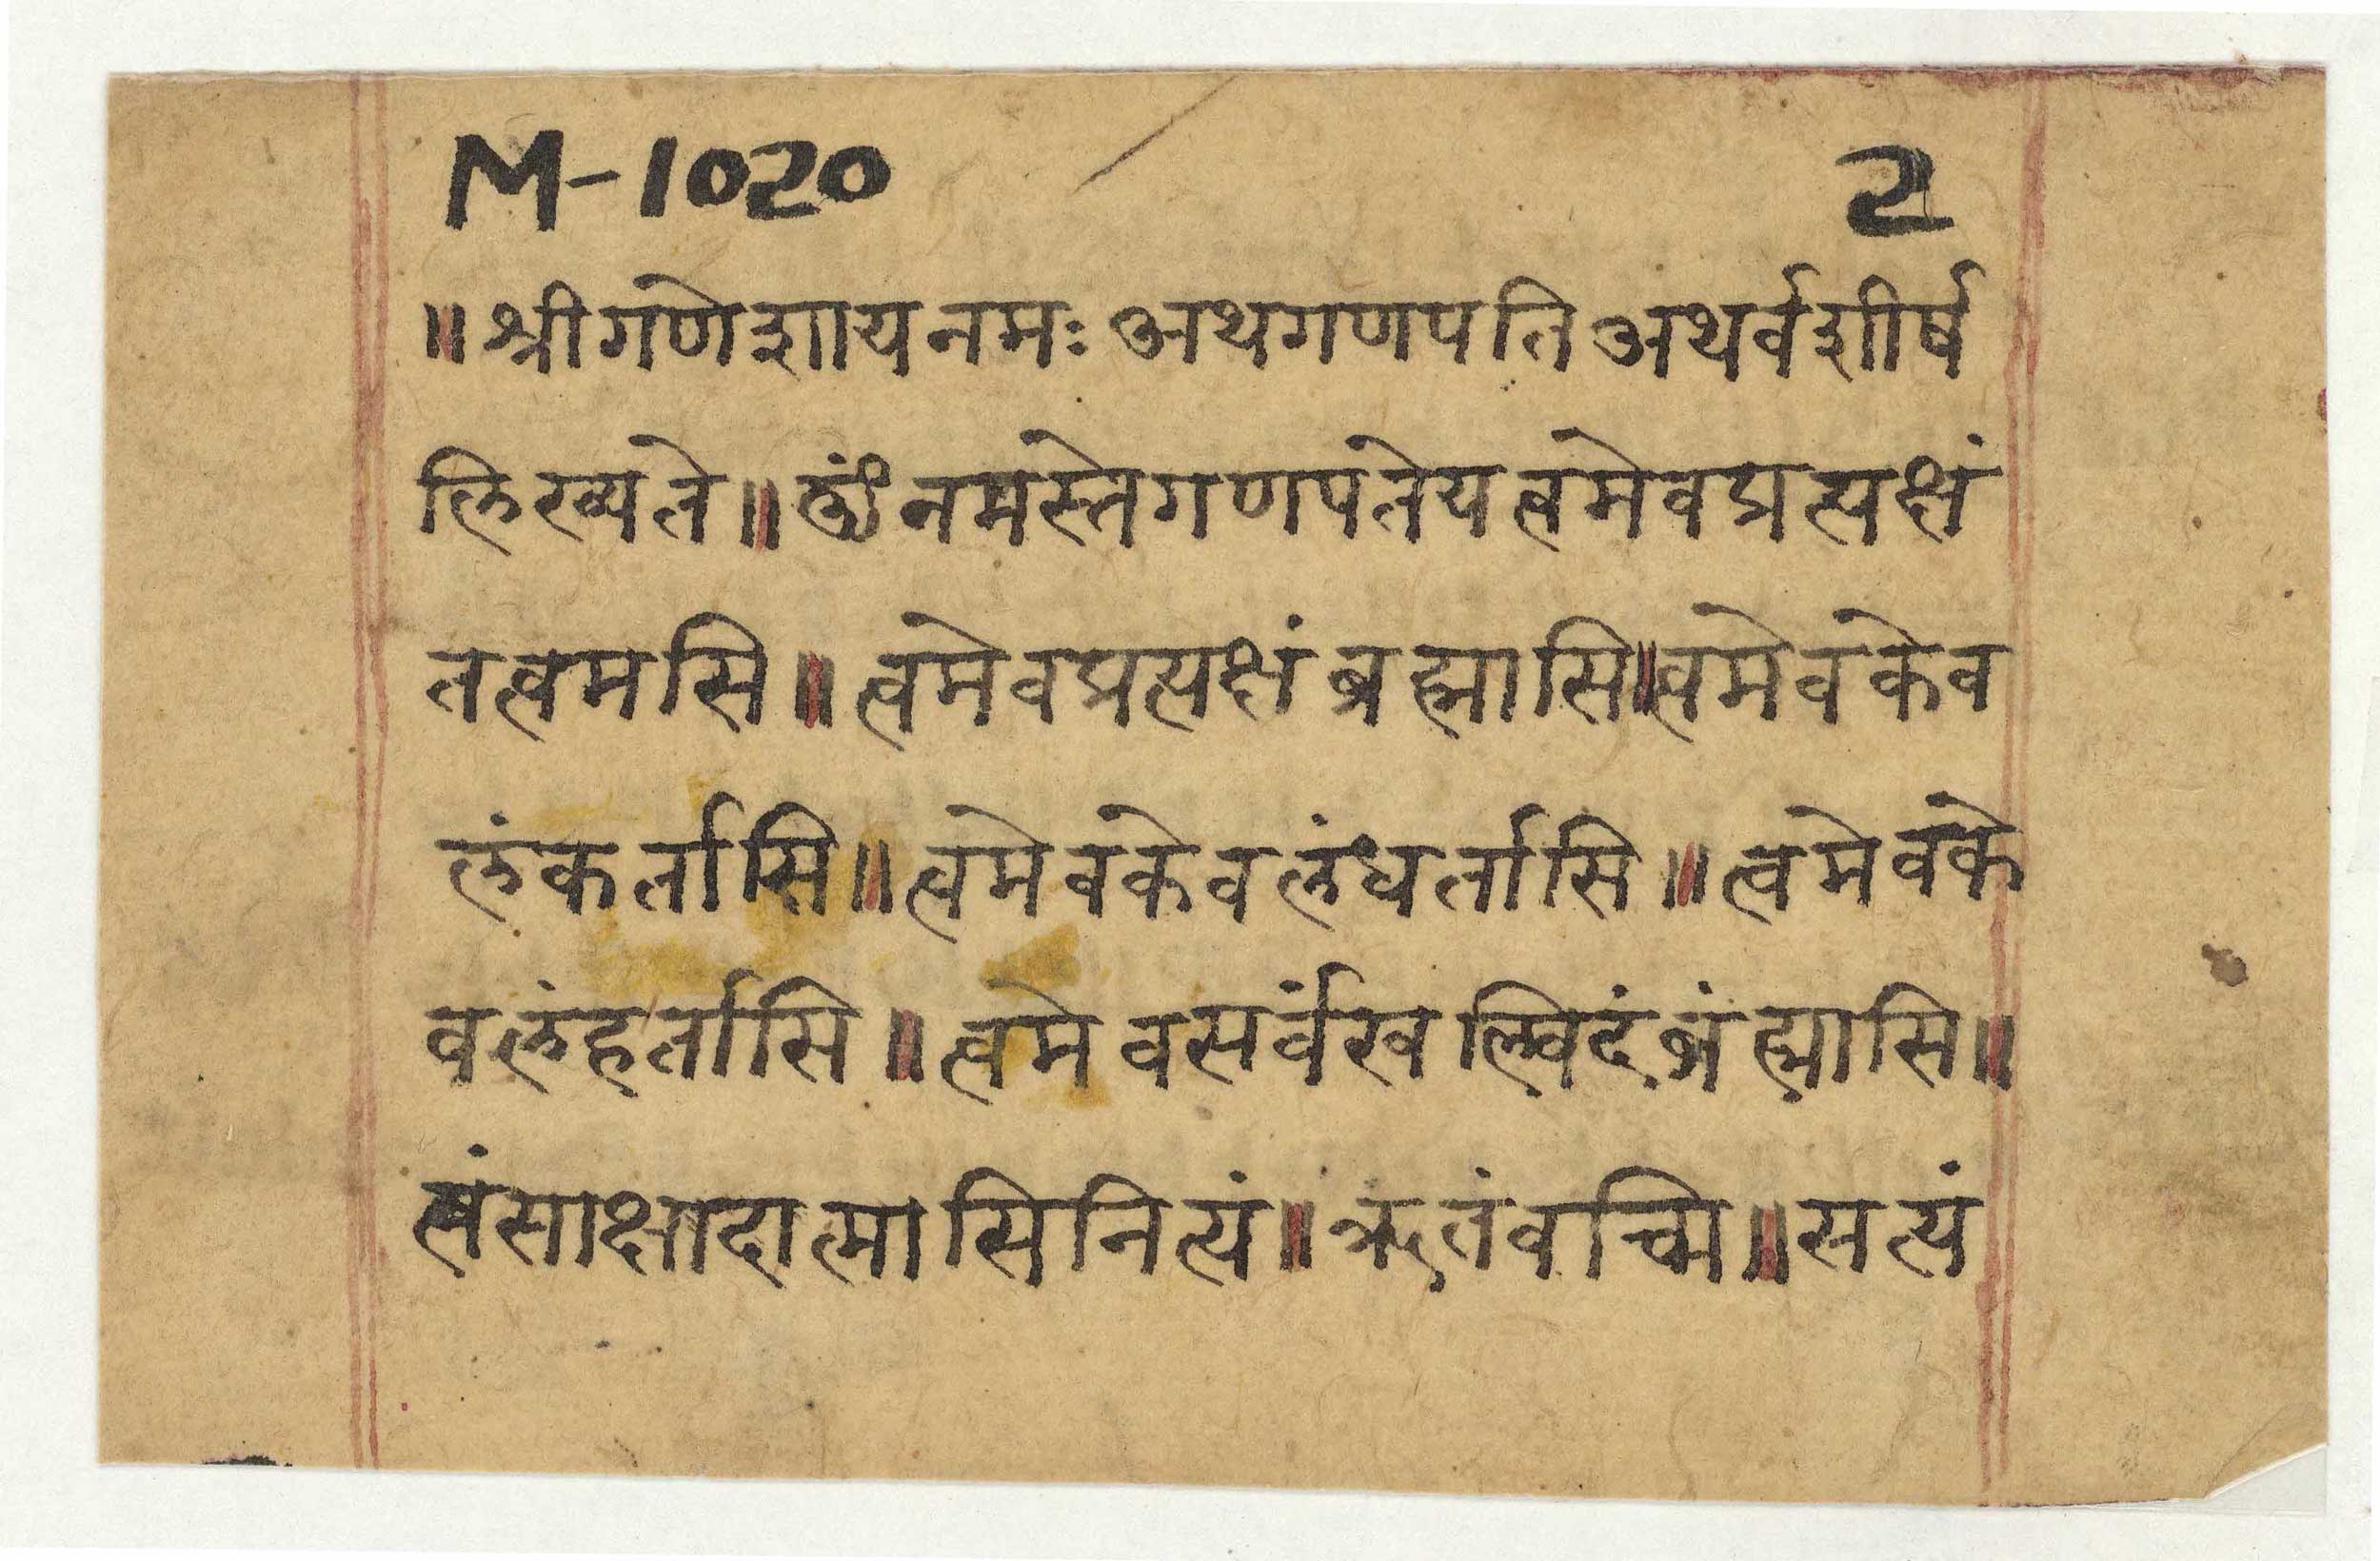 M-1020 2
॥श्रीगणेशायनमः अथगणपतिअथर्वशीर्ष
लिख्यते॥ॐनमस्तेगणपतेयत्वमेवप्रत्यक्षं
तत्वमसि॥त्वमेवप्रत्यक्षंब्रह्मासि॥त्वमेवकेव
लंकर्तासि॥त्वमेवकेवलंधर्तासि॥त्वमेवके
वलंहर्तासि॥त्वमेवसर्वंखल्विदंब्रंह्मासि॥
त्वंसाक्षादात्मासिनित्यं॥ऋतंवच्मि॥सत्यं